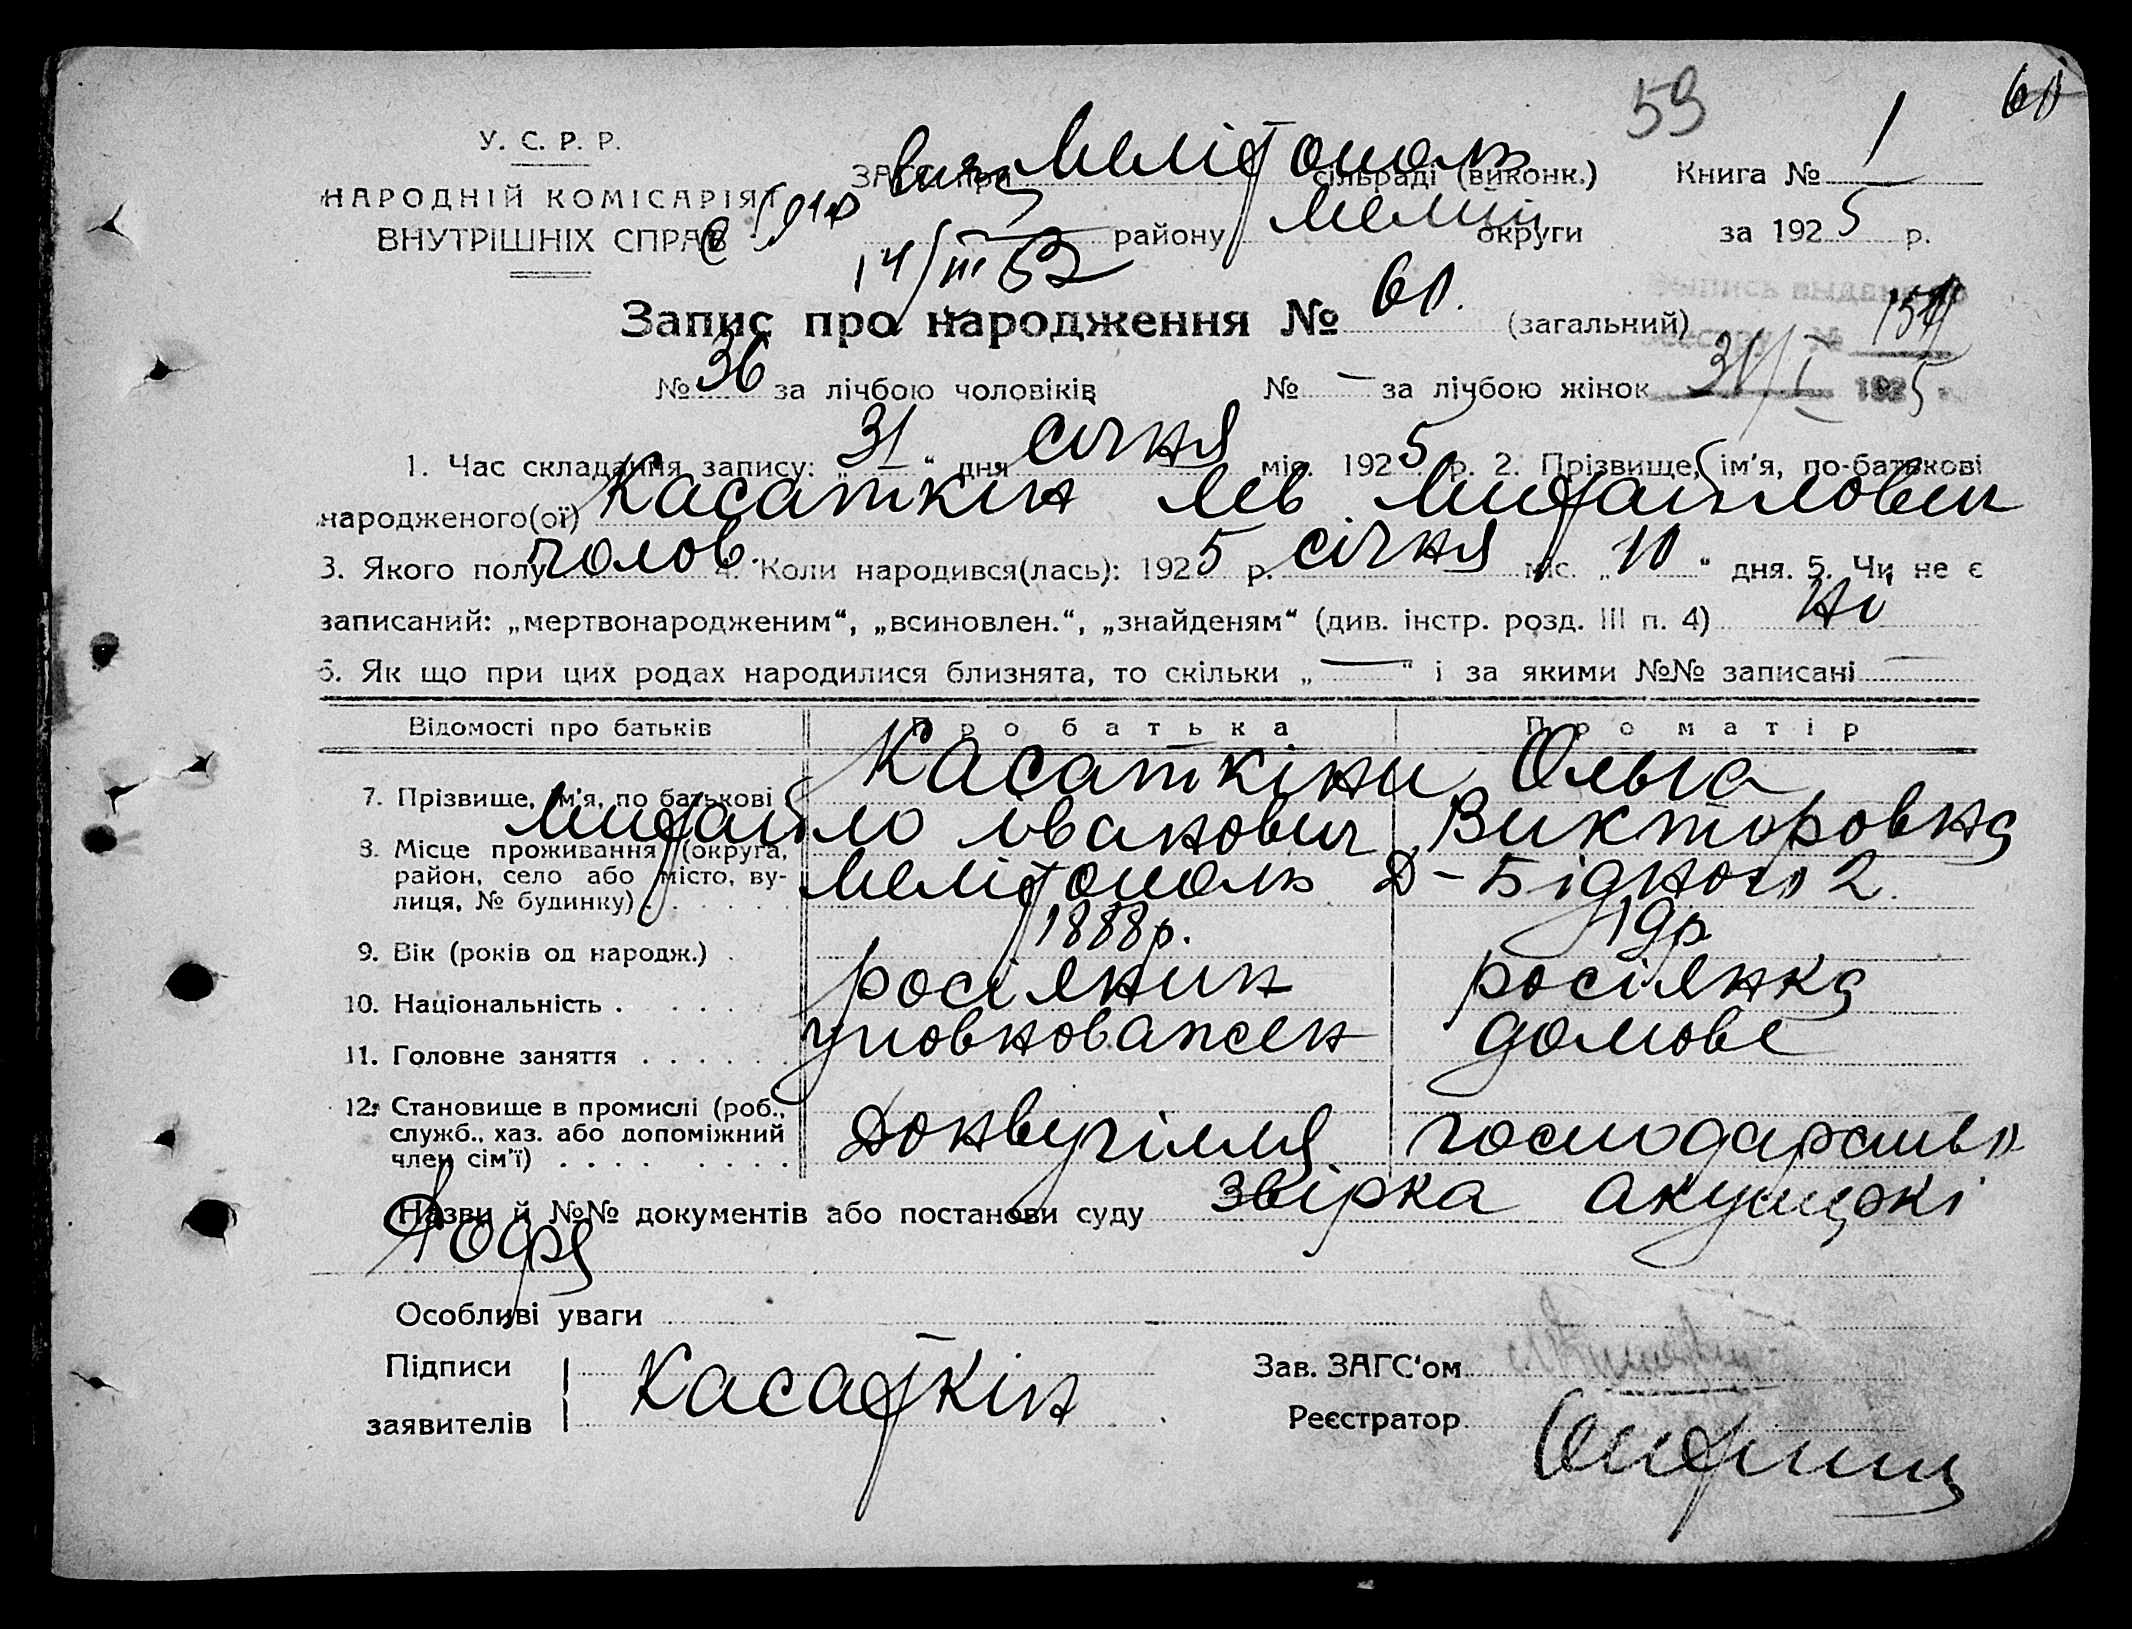 59 60
У. С. Р. Р.
НАРОДНІЙ КОМІСАРІЯТ
ВНУТРІШНІХ СПРАВ
ЗАГС при Мелітополь сільраді (виконк.) Книга № 1
району Меліт округи за 1925 р.
14/III 52
Запис про народження № 60. (загальний)
31/I 1925
№ 36 за лічбою чоловіків № — за лічбою жінок
1. Час складання запису: „31“ дня січня міс. 1925 р. 2. Прізвище, ім'я, по-батькові
народженого(ої) Касаткін Лев Михайлович
3. Якого полу чолов. 4. Коли народився(лась): 1925 р. січня міс. „10“ дня. 5. Чи не є
записаний: „мертвонародженим“, „всиновлен.“, „знайденям“ (див. інстр. розд. III п. 4) Ні
6. Як що при цих родах народилися близнята, то скільки „—“ і за якими №№ записані —
Відомості про батьків Про батька Про матір
7. Прізвище, ім'я, по батькові Касаткіни Ольга
Михайло Іванович Викторовна
8. Місце проживання (округа, район, село або місто, вулиця, № будинку) Мелітополь Д-Бідного 2.
9. Вік (років од народж.) 1888р. 19р
10. Національність росіянин росіянка
11. Головне заняття уповноважен домове
12. Становище в промислі (роб., служб., хаз. або допоміжний член сім'ї) Донвугілля господарство
Назви й №№ документів або постанови суду звірка акушерки
Особливі уваги
Підписи заявителів Касаткін
Зав. ЗАГС'ом
Реєстратор